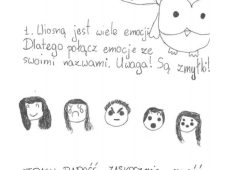 1. Wiosną jest wiele emocji.
Dlatego połącz emocje ze
swoimi nazwami. Uwaga! Są zmyłki!
RADOŚĆ